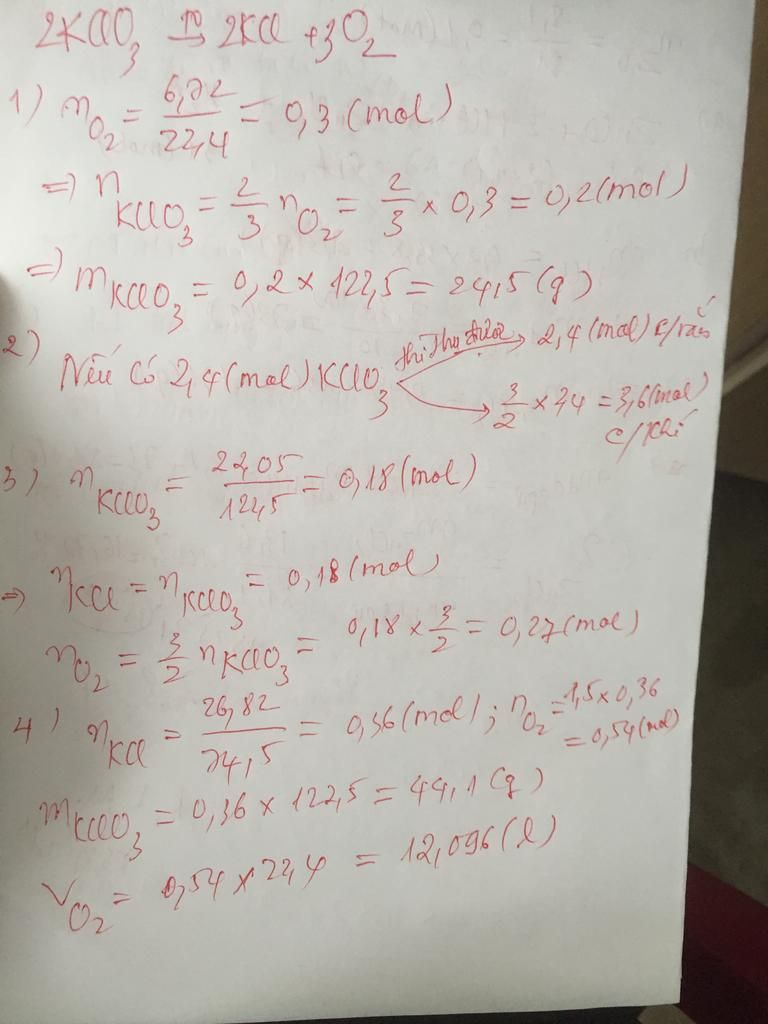 2KClO₃ t°→ 2KCl + 3O₂
1) nO₂ = 6,72/22,4 = 0,3 (mol)
=> nKClO₃ = 2/3 nO₂ = 2/3 × 0,3 = 0,2 (mol)
=> mKClO₃ = 0,2 × 122,5 = 24,5 (g)
2) Nếu có 2,4 (mol) KClO₃ thì thu được 2,4 (mol) c/rắn
3/2 × 2,4 = 3,6 (mol)
c/khí
3) nKClO₃ = 22,05/122,5 = 0,18 (mol)
=> nKCl = nKClO₃ = 0,18 (mol)
nO₂ = 3/2 nKClO₃ = 0,18 × 3/2 = 0,27 (mol)
4) nKCl = 26,82/74,5 = 0,36 (mol) ; nO₂ = 1,5 × 0,36
= 0,54 (mol)
mKClO₃ = 0,36 × 122,5 = 44,1 (g)
VO₂ = 0,54 × 22,4 = 12,096 (l)